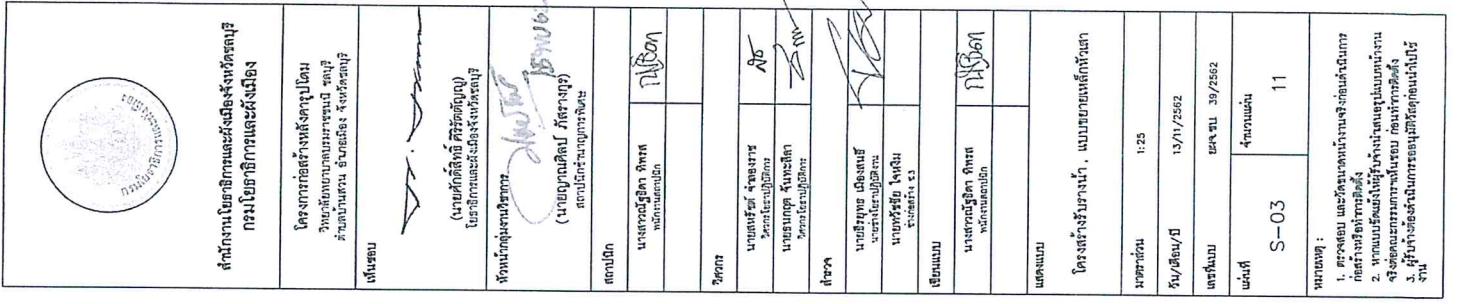 กรมโยธาธิการและผังเมือง
สำนักงานโยธาธิการและผังเมืองจังหวัดชลบุรี
กรมโยธาธิการและผังเมือง
โครงการก่อสร้างหลังคารูปโดม
วิทยาลัยพยาบาลบรมราชชนนี ชลบุรี
ตำบลบ้านสวน อำเภอเมือง จังหวัดชลบุรี
เห็นชอบ
(นายศักดิ์สิทธิ์ ศิริรัตตัญญู)
โยธาธิการและผังเมืองจังหวัดชลบุรี
หัวหน้ากลุ่มงานวิชาการ
(นายญาณศิลป์ ภัสรางกูร)
สถาปนิกชำนาญการพิเศษ
สถาปนิก
นางสาวณัฐธิดา ทิพรส
พนักงานสถาปนิก
ณัฐธิดา
วิศวกร
นายสหรัศค์ จำทองราช
วิศวกรโยธาปฏิบัติการ
นายธนกฤต จันทะสีลา
วิศวกรโยธาปฏิบัติการ
สำรวจ
นายธีรยุทธ เมืองสนธ์
นายช่างโยธาปฏิบัติงาน
นายทวีชชัย ใจหงิม
ช่างก่อสร้าง ช3
เขียนแบบ
นางสาวณัฐธิดา ทิพรส
พนักงานสถาปนิก
ณัฐธิดา
แสดงแบบ
โครงสร้างรับรางน้ำ , แบบขยายเหล็กหัวเสา
มาตราส่วน 1:25
วัน/เดือน/ปี 13/11/2562
เลขที่แบบ ยผจ.ชบ 39/2562
แผ่นที่ จำนวนแผ่น
S-03 11
หมายเหตุ :
1. ตรวจสอบ และวัดขนาดหน้างานจริงก่อนดำเนินการ
ก่อสร้างหรือทำการติดตั้ง
2. หากแบบขัดแย้งให้ผู้รับจ้างนำเสนอรูปแบบหน้างาน
จริงต่อคณะกรรมการเห็นชอบ ก่อนทำการติดตั้ง
3. ผู้รับจ้างต้องดำเนินการขออนุมัติวัสดุก่อนนำไปใช้
งาน